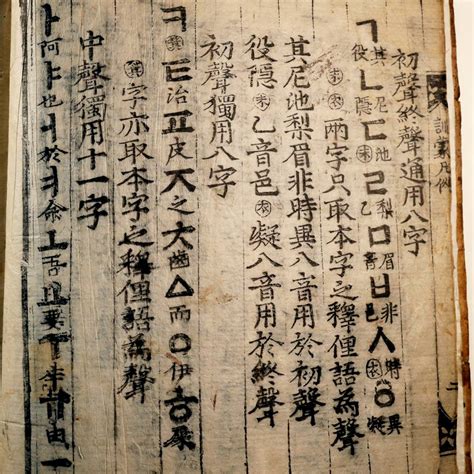 訓蒙凡例
二
初聲終聲通用八字
ㄱ其役ㄴ尼隱ㄷ池末ㄹ梨乙ㅁ眉音ㅂ非邑ㅅ時衣ㆁ異凝
末衣兩字只取本字之釋俚語爲聲
其尼池梨眉非時異八音用於初聲
役隱末乙音邑衣凝八音用於終聲
初聲獨用八字
ㅋ箕ㅌ治ㅍ皮ㅈ之ㅊ齒ㅿ而ㅇ伊ㅎ屎
箕字亦取本字之釋俚語爲聲
中聲獨用十一字
ㅏ阿ㅑ也ㅓ於ㅕ余ㅗ吾ㅛ要ㅜ牛ㅠ由ㅡ